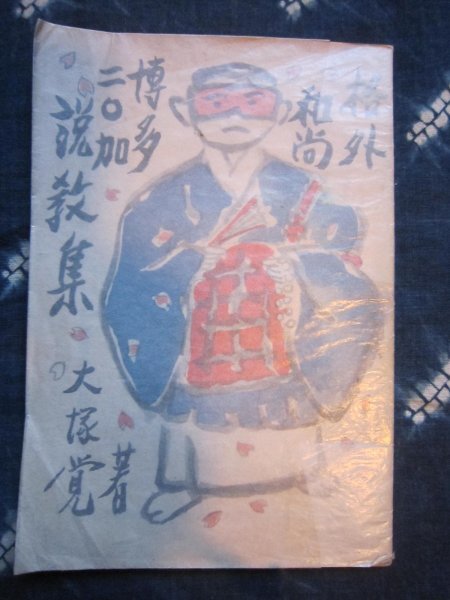 格外
和尚
博多
二〇加
説教集
大塚覚
著